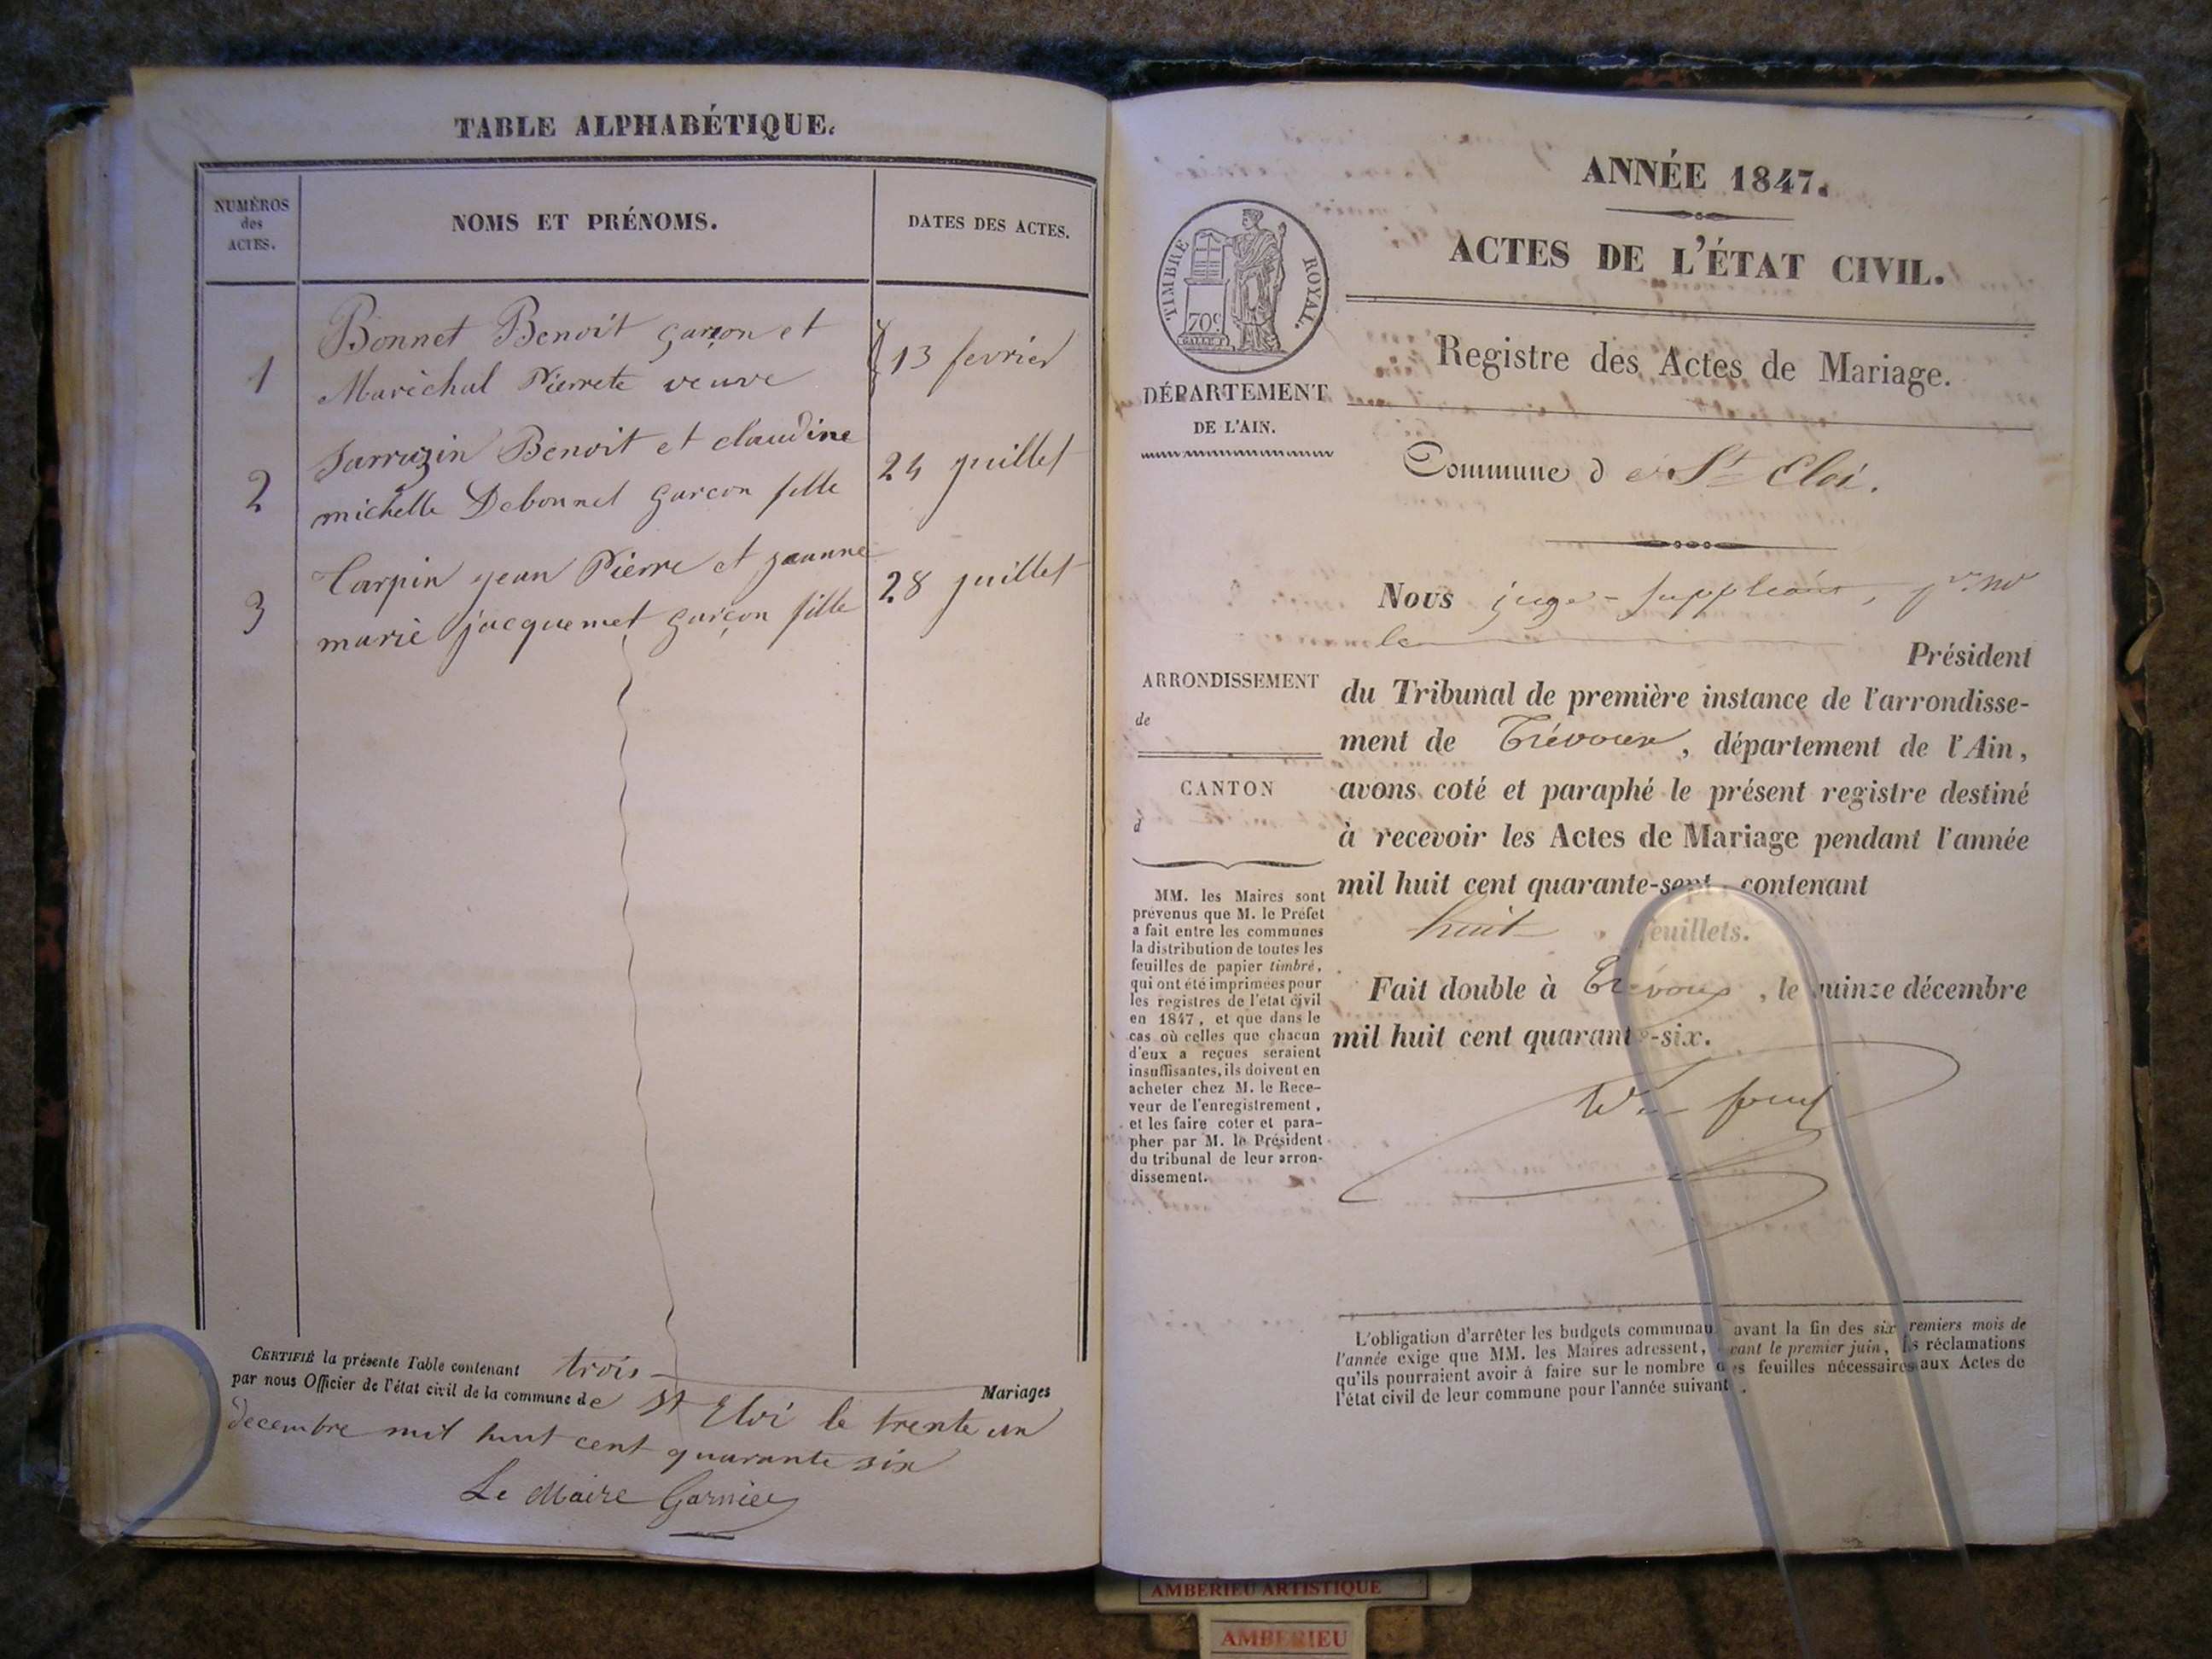 TABLE ALPHABÉTIQUE.
NUMÉROS
des
ACTES.
NOMS ET PRÉNOMS.
DATES DES ACTES.
1
Bonnet Benoit garçon et
Maréchal Pierrete veuve
13 fevrier
2
Sarrazin Benoit et claudine
michelle Debonnel garcon fille
24 juillet
3
Carpin jean Pierre et jeanne
marie jacquemet garçon fille
28 juillet
CERTIFIÉ la présente Table contenant trois Mariages
par nous Officier de l'état civil de la commune de St Eloi le trente un
decembre mil huit cent quarante six
Le Maire Garnier
ANNÉE 1847.
ACTES DE L'ÉTAT CIVIL.
TIMBRE ROYAL.
70c
Registre des Actes de Mariage.
DÉPARTEMENT
DE L'AIN.
Commune de St Eloi.
Nous juge-suppléant,
le Président
ARRONDISSEMENT
de
CANTON
d
du Tribunal de première instance de l'arrondisse-
ment de Trévoux, département de l'Ain,
avons coté et paraphé le présent registre destiné
à recevoir les Actes de Mariage pendant l'année
mil huit cent quarante-sept, contenant
huit feuillets.
Fait double à Trévoux, le quinze décembre
mil huit cent quarante-six.
MM. les Maires sont
prévenus que M. le Préfet
a fait entre les communes
la distribution de toutes les
feuilles de papier timbré,
qui ont été imprimées pour
les registres de l'état civil
en 1847, et que dans le
cas où celles que chacun
d'eux a reçues seraient
insuffisantes, ils doivent en
acheter chez M. le Rece-
veur de l'enregistrement,
et les faire coter et para-
pher par M. le Président
du tribunal de leur arron-
dissement.
L'obligation d'arrêter les budgets communaux avant la fin des six premiers mois de
l'année exige que MM. les Maires adressent, avant le premier juin, les réclamations
qu'ils pourraient avoir à faire sur le nombre des feuilles nécessaires aux Actes de
l'état civil de leur commune pour l'année suivante.
AMBERIEU ARTISTIQUE
AMBERIEU